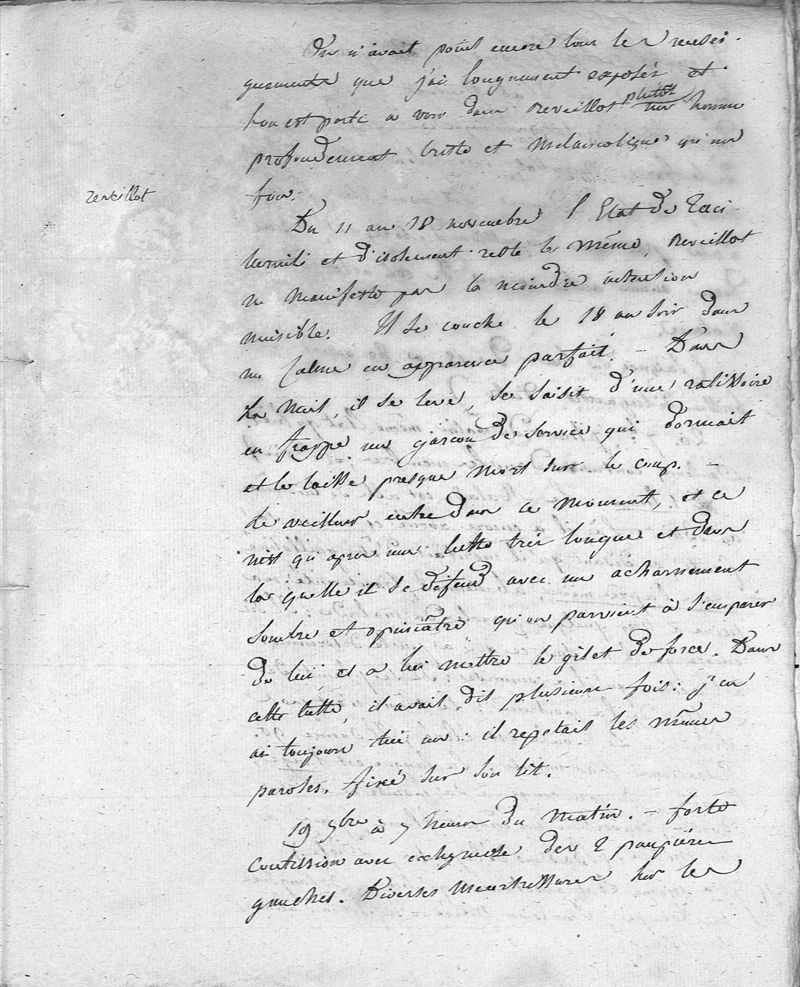 On n'avait point encore tous les rensei-
gnements que j'ai longuement exposés et
l'on est porté a voir dans Reveillot plutôt un homme
profondement triste et melancolique qu'un
fou.
Reveillot
Du 11 au 18 novembre l'Etat de Taci
turnité et d'isolement reste le même, Reveillot
ne manifeste pas la moindre intention
nuisible. Il se couche le 18 au soir dans
un calme en apparence parfait. - Dans
la Nuit, il se leve, se saisit d'une ratissoire
en frappe un garçon de service qui dormait
et le laisse presque mort sur le coup. -
Le veilleur entre dans ce moment, et ce
n'est qu'apres une lutte très longue et dans
la quelle il se défend avec un acharnement
sombre et opiniâtre qu'on parvient à s'emparer
de lui et a lui mettre le gilet de force. Dans
cette lutte, il avait dit plusieurs fois: j'en
ai toujours tué un: il repetait les mêmes
paroles, fixé sur son lit.
19 9bre à 7 heures du matin. - forte
contusion avec echymose des 2 paupières
gauches. Diverses meurtrissures sur les